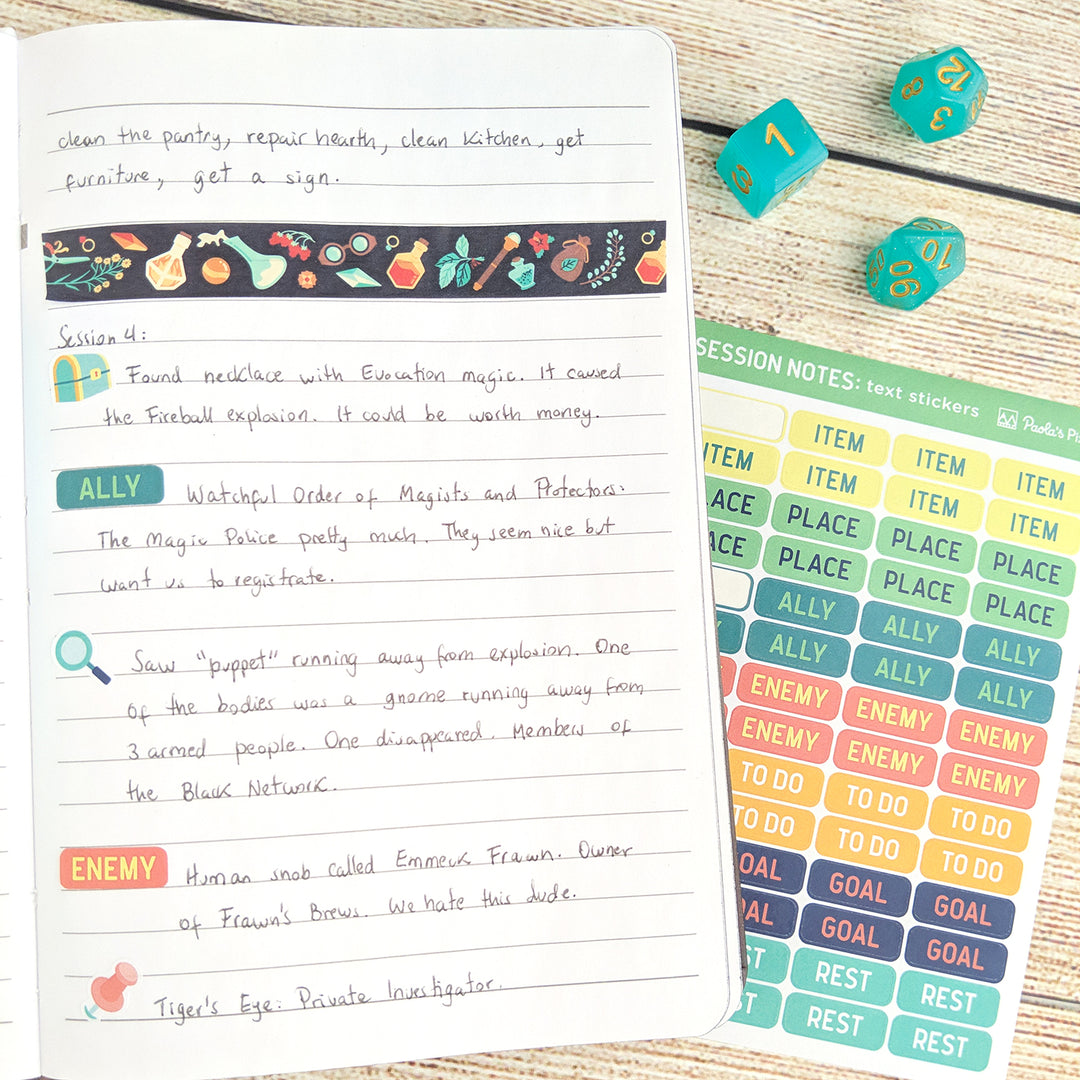 clean the pantry, repair hearth, clean kitchen, get
furniture, get a sign.
Session 4:
Found necklace with Evocation magic. It caused
the Fireball explosion. It could be worth money.
ALLY Watchful Order of Magists and Protectors:
The Magic Police pretty much. They seem nice but
want us to registrate.
Saw "puppet" running away from explosion. One
of the bodies was a gnome running away from
3 armed people. One disappeared. Members of
the Black Network.
ENEMY Human snob called Emmeck Frawn. Owner
of Frawn's Brews. We hate this dude.
Tiger's Eye: Private Investigator.
1
3
12
8
3
10
90
SESSION NOTES: text stickers
Paola's Pi
ITEM ITEM ITEM
ITEM ITEM ITEM ITEM
LACE PLACE PLACE PLACE
ACE PLACE PLACE PLACE
ALLY ALLY ALLY
Y ALLY ALLY ALLY
ENEMY ENEMY ENEMY
ENEMY ENEMY ENEMY
TO DO TO DO TO DO
TO DO TO DO TO DO
OAL GOAL GOAL
OAL GOAL GOAL
ST REST REST
ST REST REST